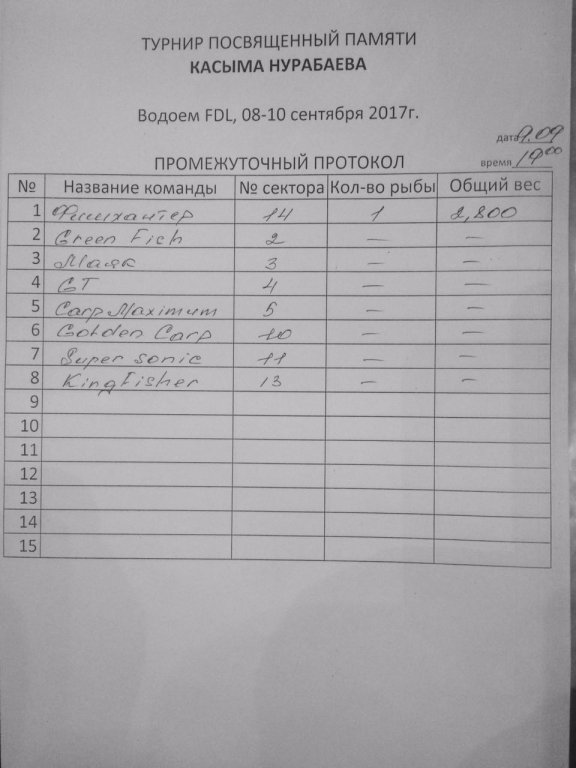 ТУРНИР ПОСВЯЩЕННЫЙ ПАМЯТИ
КАСЫМА НУРАБАЕВА
Водоем FDL, 08-10 сентября 2017г.
дата 9.09
ПРОМЕЖУТОЧНЫЙ ПРОТОКОЛ время 19⁰⁰
№ Название команды № сектора Кол-во рыбы Общий вес
1 Фишхантер 14 1 2,800
2 Green Fich 2 — —
3 Маяк 3 — —
4 GT 4 — —
5 Carp Maximum 5 — —
6 Golden Carp 10 — —
7 Super sonic 11 — —
8 KingFisher 13 — —
9
10
11
12
13
14
15